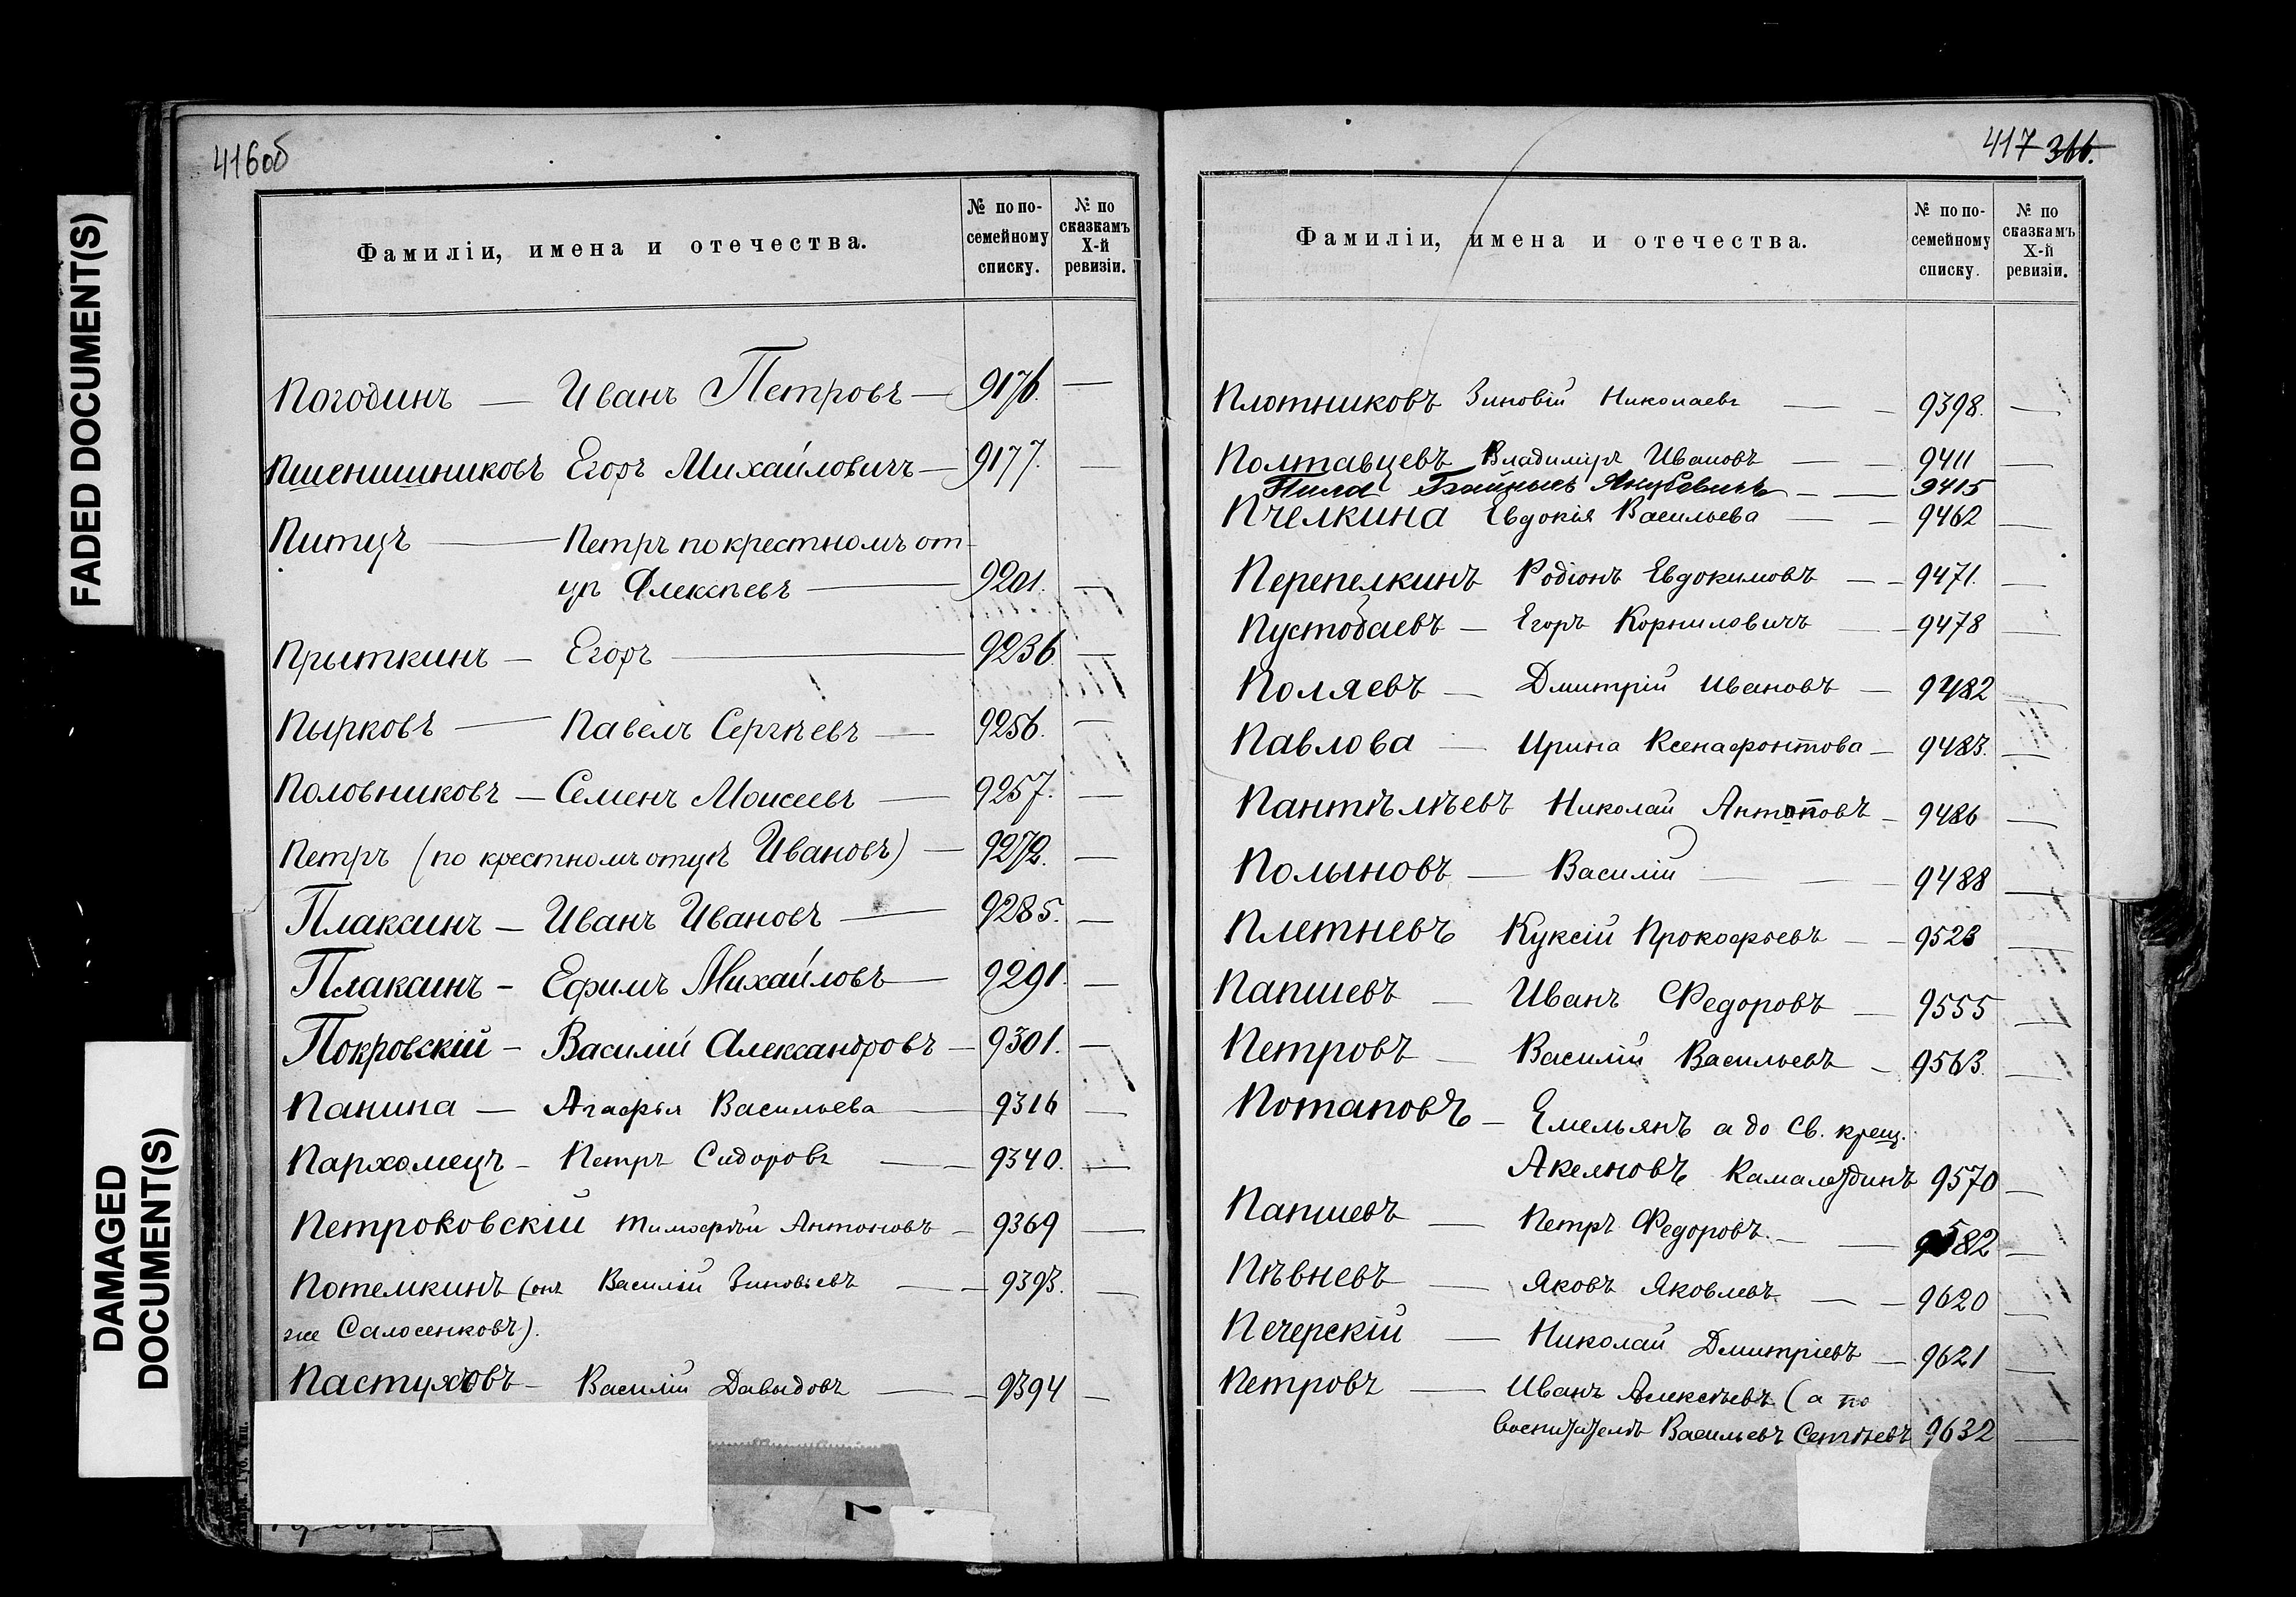 FADED DOCUMENT(S)
DAMAGED
DOCUMENT(S)
416об
Фамиліи, имена и отечества.
№ по по-
семейному
списку.
№ по
сказкамъ
X-й
ревизіи.
Погодинъ — Иванъ Петровъ — 9176. —
Пшенишниковъ Егоръ Михайловичъ — 9177. —
Питуъ — Петръ по крестномъ от-
цѣ Алексѣевъ — 9201. —
Прыткинъ — Егоръ — 9236. —
Пырковъ — Павелъ Сергѣевъ — 9256. —
Половниковъ — Семенъ Моисеевъ — 9257. —
Петръ (по крестномъ отцѣ Ивановъ) — 9272. —
Плаксинъ — Иванъ Ивановъ — 9285. —
Плаксинъ - Ефимъ Михайловъ — 9291. —
Покровскій - Василій Александровъ — 9301. —
Панина — Агафья Васильева — 9316 —
Пархомецъ - Петръ Сидоровъ — — 9340. —
Петроковскій Тимофѣй Антоновъ — 9369 —
Потемкинъ (онъ Василій Зиновьевъ — — 9393. —
же Салосенковъ).
Пастуховъ - Василій Давыдовъ — — 9394 —
7
417 366.
Фамиліи, имена и отечества.
№ по по-
семейному
списку.
№ по
сказкамъ
X-й
ревизіи.
Плотниковъ Зиновій Николаевъ — — 9398. —
Полтавцевъ Владиміръ Ивановъ — — 9411 —
Пила — — 9415
Пчелкина Евдокія Васильева — — 9462 —
Перепелкинъ Родіонъ Евдокимовъ — — 9471. —
Пустобаевъ — Егоръ Корниловичъ — — 9478 —
Поляевъ — Дмитрій Ивановъ — 9482 —
Павлова — Ирина Ксенафонтова — 9483. —
Пантѣлѣевъ Николай Антиповъ — 9486 —
Полыновъ — Василій — — — 9488 —
Плетневъ Куксій Прокофьевъ — — 9523 —
Папшевъ — Иванъ Федоровъ — 9555 —
Петровъ — Василій Васильевъ — 9563. —
Потаповъ — Емельянъ а до Св. крещ.
Акеяновъ Камалетдинъ 9570 —
Папшевъ — Петръ Федоровъ. — — 9582 —
Пѣвневъ — Яковъ Яковлевъ — — 9620 —
Печерскій — Николай Дмитріевъ — 9621 —
Петровъ — Иванъ Алексѣевъ (а по
воспитателѣ Васильевъ Сергѣевъ 9632 —